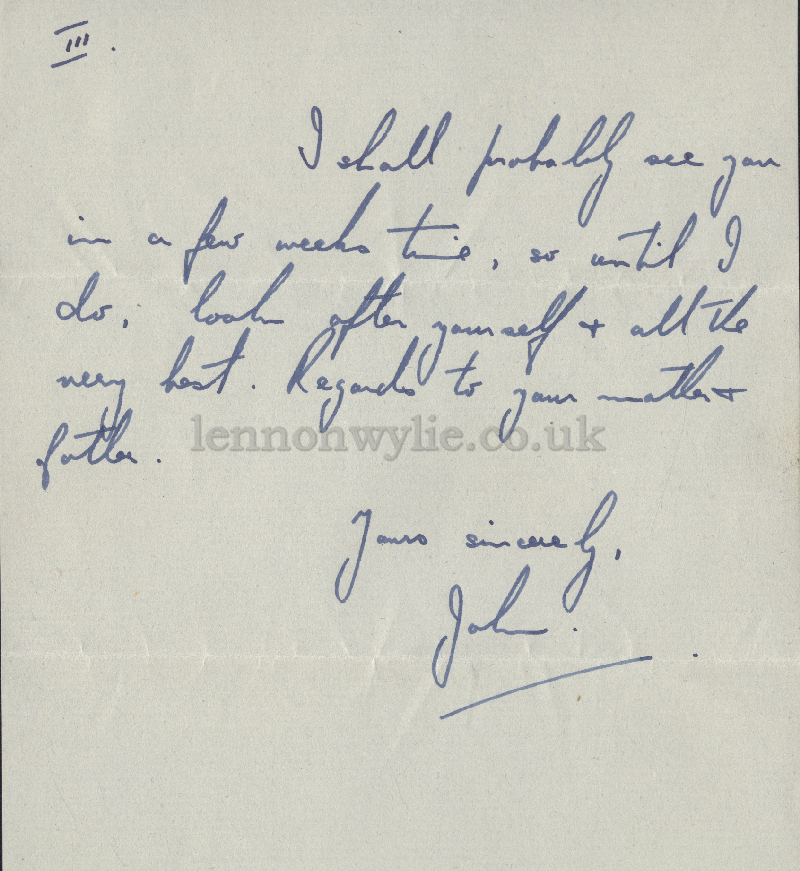 III.
I shall probably see you
in a few weeks time, so until I
do, look after yourself + all the
very best. Regards to your mother +
father.
lennonwylie.co.uk
Yours sincerely,
John.